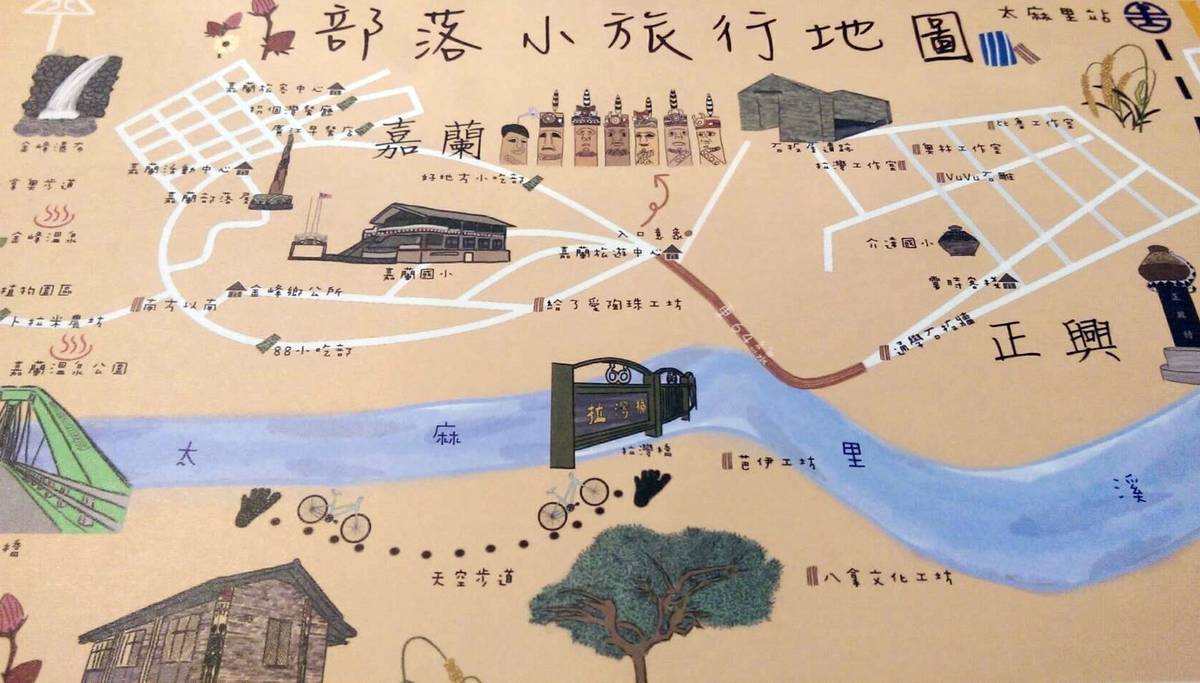 部落小旅行地圖
太麻里站
嘉蘭旅客中心
拐個灣餐廳
廣江早餐店
嘉蘭
金峰瀑布
嘉蘭活動中心
好地方小吃部
石板屋遺跡
拉灣工作室
比魯工作室
奧林工作室
VuVu石雕
拿奧步道
嘉蘭部落屋
金峰溫泉
嘉蘭國小
入口意象
嘉蘭旅遊中心
介達國小
植物園區
南方以南
金峰鄉公所
給了愛陶珠工坊
卜拉米農坊
88小吃部
嘉蘭溫泉公園
通學石板牆
正興
正興村
拉灣橋
拉灣橋
太麻里溪
芭伊工坊
橋
天空步道
八拿文化工坊